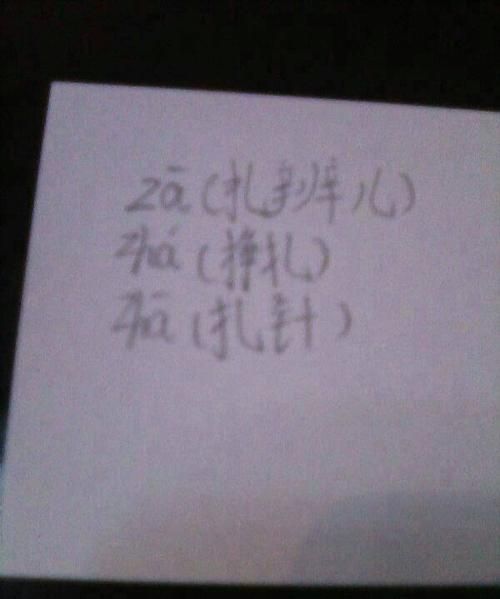 zā (扎辫儿)
zhá (挣扎)
zhā (扎针)